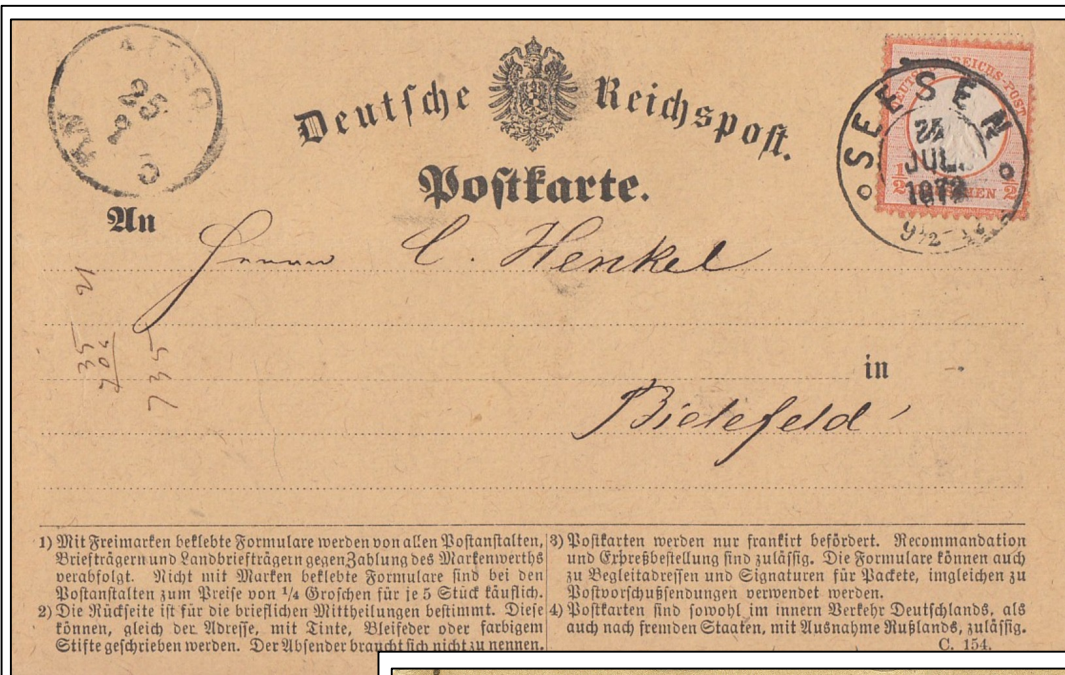 Deutsche Reichspost.
Postkarte.
DEUTSCHE REICHS-POST
1/2 1/2
SEESEN
25
JULI
1872
9½-12
25
5
An
Herrn C. Henkel
in
Bielefeld
21
735
735
1) Mit Freimarken beklebte Formulare werden von allen Postanstalten,
Briefträgern und Landbriefträgern gegen Zahlung des Markenwerths
verabfolgt. Nicht mit Marken beklebte Formulare sind bei den
Postanstalten zum Preise von 1/4 Groschen für je 5 Stück käuflich.
2) Die Rückseite ist für die brieflichen Mittheilungen bestimmt. Diese
können, gleich der Adresse, mit Tinte, Bleifeder oder farbigem
Stifte geschrieben werden. Der Absender braucht sich nicht zu nennen.
3) Postkarten werden nur frankirt befördert. Recommandation
und Expreßbestellung sind zulässig. Die Formulare können auch
zu Begleitadressen und Signaturen für Packete, imgleichen zu
Postvorschußsendungen verwendet werden.
4) Postkarten sind sowohl im innern Verkehr Deutschlands, als
auch nach fremden Staaten, mit Ausnahme Rußlands, zulässig.
C. 154.